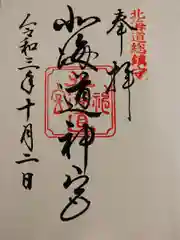 北海道総鎮守
奉拝
北海道神宮
令和三年十月二日